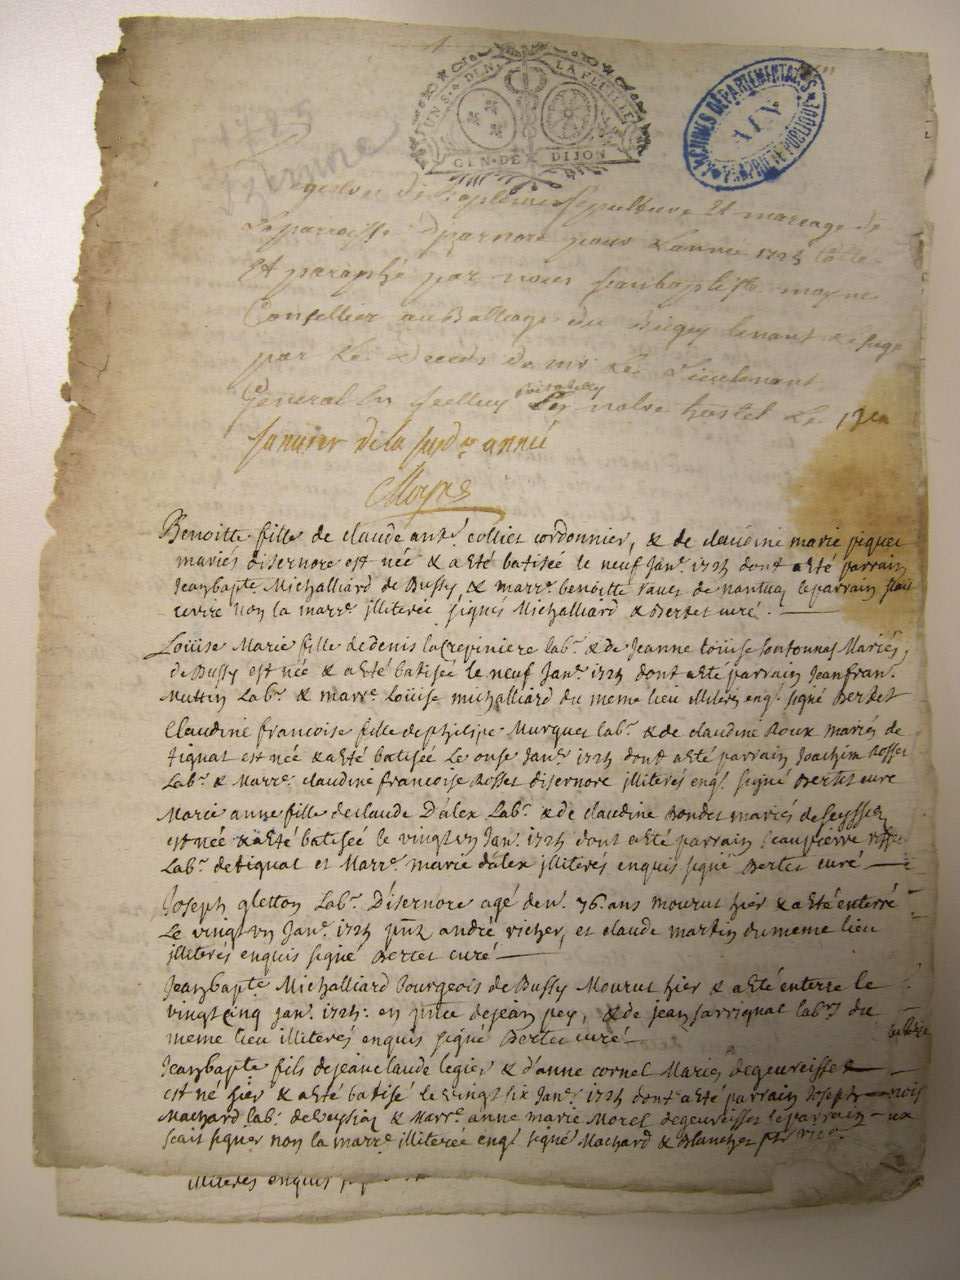 GEN. DE DIJON
ARCHIVES DÉPARTEMENTALES
AIN
PROPRIÉTÉ PUBLIQUE
1725
Izernore
sepulture Et mariage de
La parroisse d'parnore pour L'année 1725 Cotté
Et paraphé par nous Jean baptiste moyne
Conseiller au Balliage du Bugey tenant Le siege
par Le deceds de mr Le Lieutenant
General notre hostel Le
Janvier de la susd. année
Moyne
Benoitte fille de claude ant. colliet cordonnier, & de claudine marie piquet
mariés disernore est née & a eté batisée le neuf Janr. 1725 dont a eté parrain
Jeanbapte Michalliard de Bussy, & marre. benoitte de nantua le parrain
non la marre. illiterée, signés Michalliard & Bertet curé.
Loüise Marie fille de denis la crepiniere labr. & de Jeanne Loüise Mariés
de Bussy est née & a eté batisée le neuf Janr. 1725 dont a eté parrain Jean fran.
Muttin Labr. & marre. Loüise michalliard du meme lieu illiterés enqs. signé Bertet
claudine francoise fille de philipe Murquet labr. & de claudine Roux mariés de
tignat est née & a eté batisée Le onse Janr. 1725 dont a eté parrain Joachim Rosset
Labr. & Marre. claudine francoise Rosset disernore illiterés enqs. signé Bertet curé
Marie anne fille de claude Dalex Labr. & de claudine Bondet mariés de Seyssiez
est née & a eté batisée le vingt un Janr. 1725 dont a eté parrain Jean pierre
Labr. de tignat et Marre. marie dalex illiterés enquis signé Bertet curé
Joseph gletton Labr. Disernore agé denv. 76 ans mourut hier & a eté enterré
Le vingt un Janr. 1725 pnts andré richer, et claude martin du meme lieu
illiterés enquis signé Bertet curé
Jeanbapte. Michalliard bourgeois de Bussy Mourut hier & a eté enterré le
vingt cinq Janr. 1725. en pnce de jean pey, & de jean Sarrignat labrs du
meme lieu illiterés enquis signé Bertet curé
Jeanbapte fils de jean claude legier & d'anne cornet Mariés de geureisset
est né hier & a eté batisé le vingt six Janr. 1725 dont a eté parrain Joseph
Machard labr. de & Marre. anne marie Morel de geureisset le parrain
scait signer non la marre. illiterée enqs. signé Machard & Blanchet
illiterés enquis